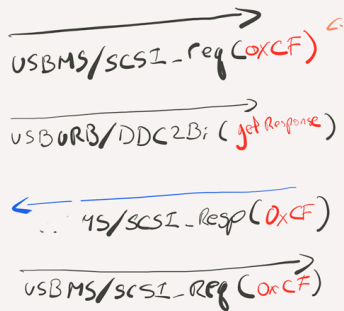 USBMS/SCSI_req(0xCF)
USBURB/DDC2Bi(getResponse)
... MS/SCSI_Resp(0xCF)
USBMS/SCSI_Req(0xCF)